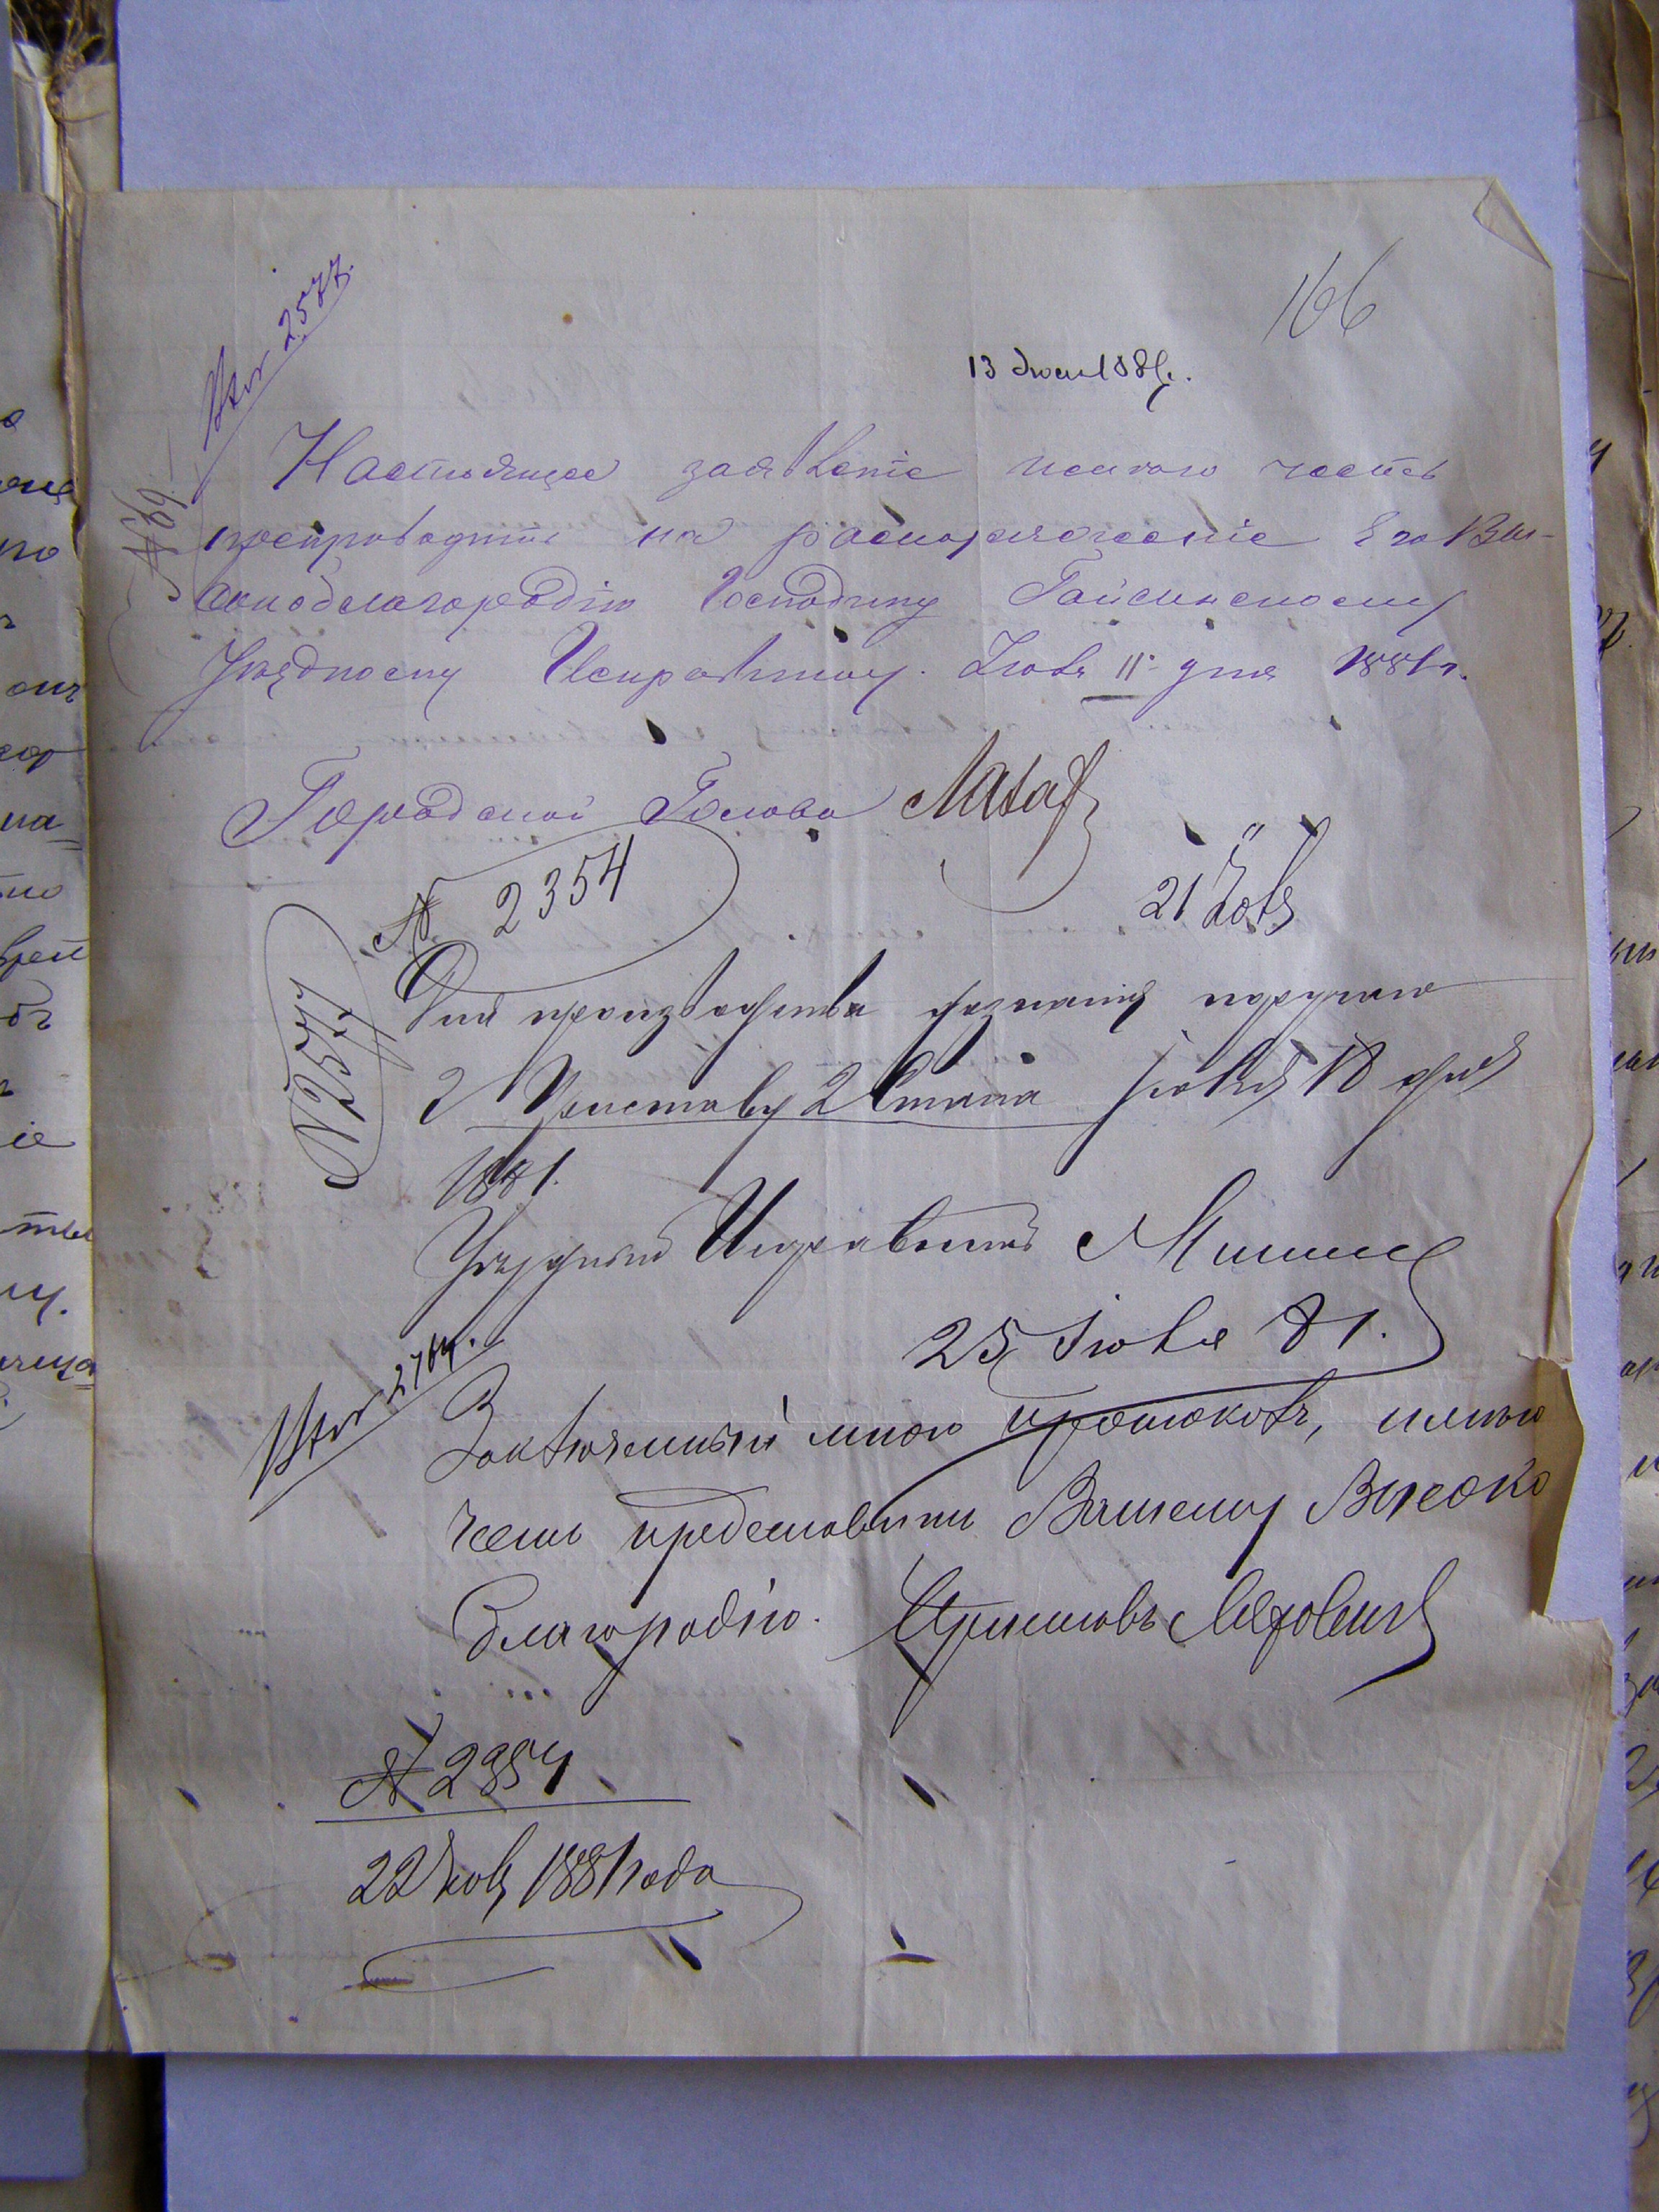 166
13 Июля 1881 г.
Вхог 2577.
№ 69
Настоящее заявленіе имѣю честь
препроводить на распоряженіе Его Вы-
сокоблагородію Господину Гайсинскому
Уѣздному Исправнику. Іюля 11 дня 1881 г.
Городской Голова
№ 2354
21 Іюля
№ 2577
Для производства дознанія поручаю
Г Приставу 2 Стана Іюля 18 дня
1881.
Уѣздный Исправникъ
25 Іюля 81.
Вхог 2764.
Заключенный мною протоколъ, имѣю
честь представить Вашему Высоко
благородію. Приставъ
№ 2954
22 Іюля 1881 года